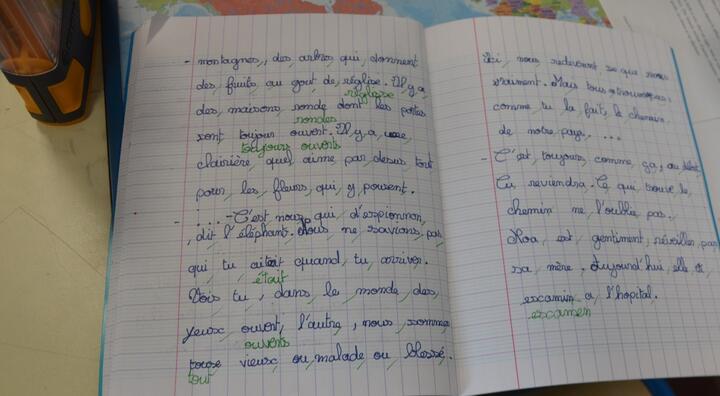 - montagnes, des arbres qui donnent
des fruits au goût de réglise. Il y a
réglisse
des maisons ronde dont les portes
rondes
sont toujour ouvert. Il y a une
toujours ouverts
clairière, quel aime par desus tout
pour les fleurs qui y pousent.
- .... - C'est nous qui t'espionnon,
dit l'éléphant. Nous ne savions pas
qui tu était quand tu arriver.
était
Vois tu, dans le monde des
yeux ouvert, l'autre, nous somme
ouverts
vieux ou malade ou blessé.
tout
Ici, nous redevenont se que nous
vraiment. Mais tous
comme tu la fait, le chemin
de notre pays. ....
- C'est toujours comme ça, au début
Tu reviendra. Ce qui trouve le
chemin ne l'oublie pas.
Noa est gentiment réveiller par
sa mère. Aujourd'hui, elle a
examin a l'hopital.
examen